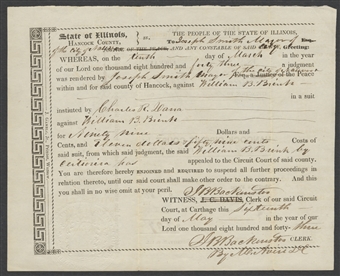 State of Illinois, } ss. THE PEOPLE OF THE STATE OF ILLINOIS,
HANCOCK COUNTY, To Joseph Smith Mayor of
of the city of Nauvoo JUSTICE OF THE PEACE, AND ANY CONSTABLE OF SAID greeting:
WHEREAS, on the tenth day of March in the year
of our Lord one thousand eight hundred and forty three a judgment
was rendered by Joseph Smith mayor of the city of Nauvoo a Justice of the Peace
within and for said county of Hancock, against William B. Brink
in a suit
instituted by Charles R. Dana
against William B. Brink
for Ninety nine Dollars and
Cents, and Eleven dollars & fifty nine cents Costs of
said suit, from which judgment, the said William B. Brink by
has appealed to the Circuit Court of said county.
You are therefore hereby ENJOINED AND REQUIRED to suspend all further proceedings in
relation thereto, until our said court shall make other order to the contrary. And this
you shall in no wise omit at your peril.
J B Backenstos
WITNESS, J. C. DAVIS, Clerk of our said Circuit
Court, at Carthage this sixteenth
day of May in the year of our
Lord one thousand eight hundred and forty-three
J B Backenstos CLERK.